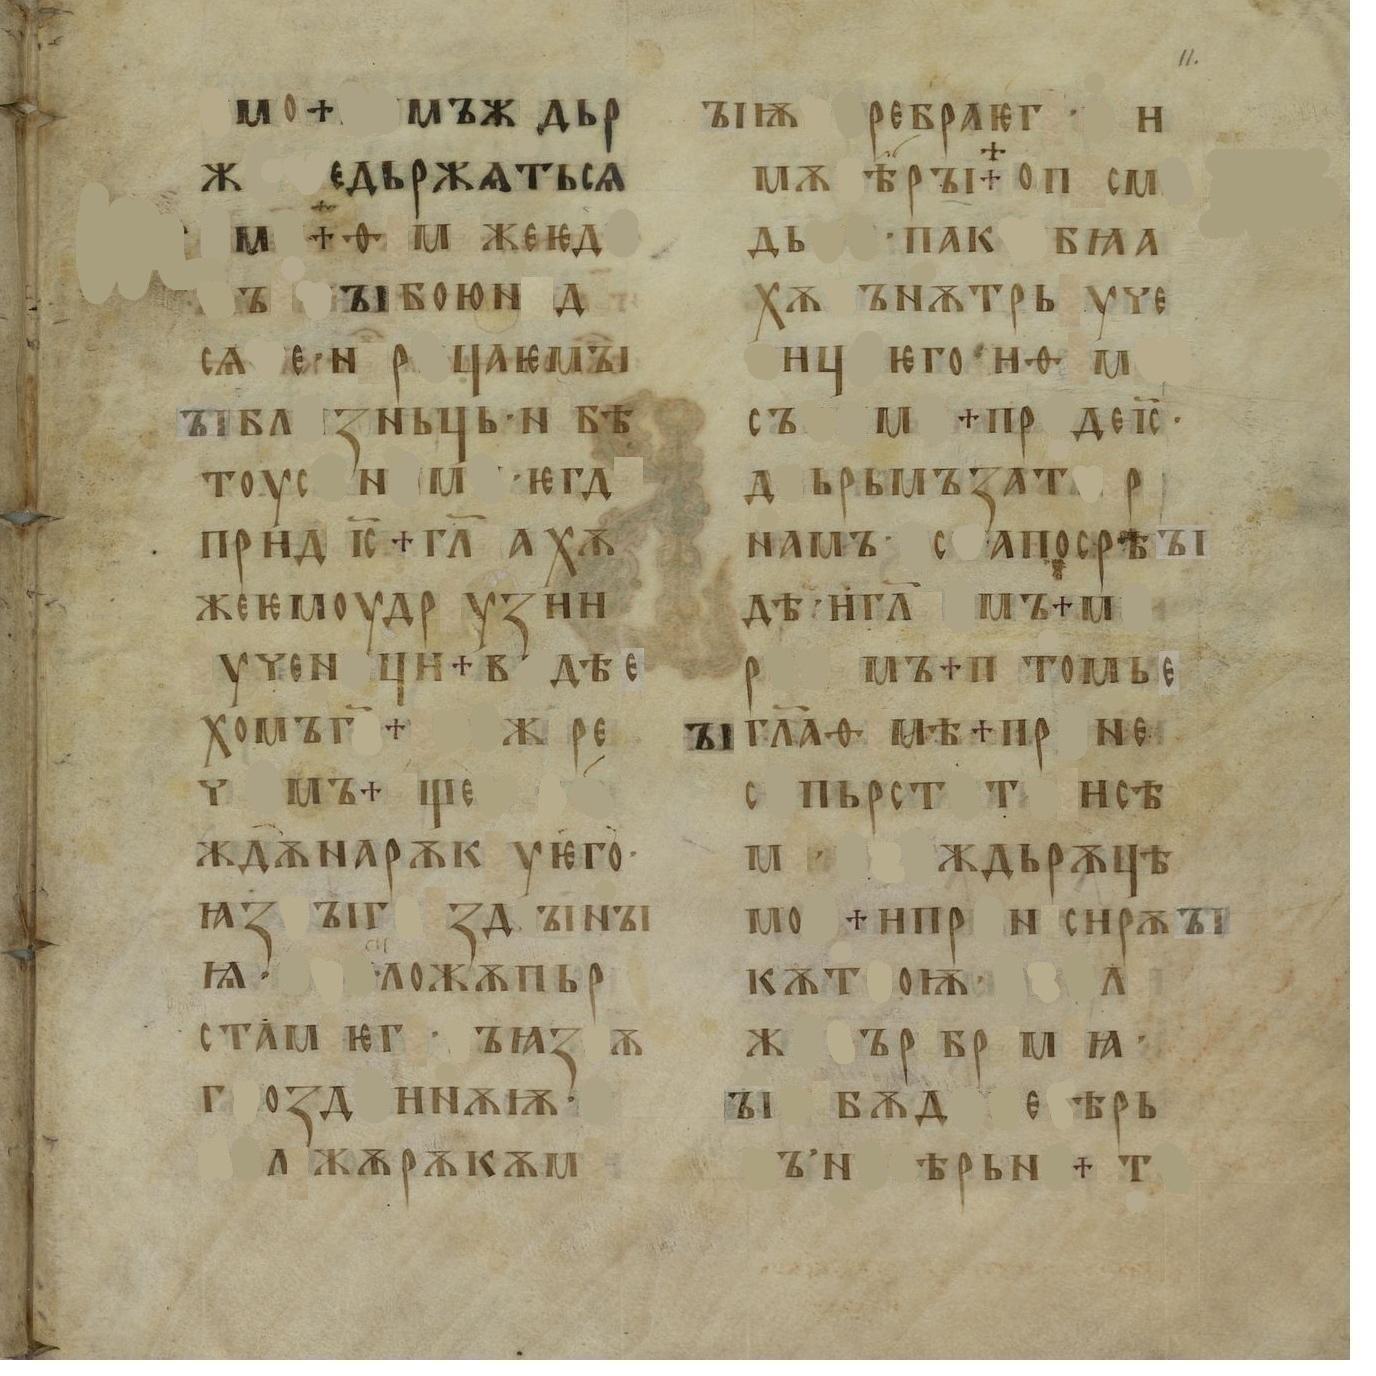 мо+ мъж дьр
ж едьржѧтьсѧ
м +ѳ м жеѥд
ъ ъıбоюн д
сѧ е·н р щаѥмъı
ъıбл зньць·н бѣ
тоус н м ·ѥгд
прнд і҃с+гл҃ ахѫ
жеѥмоудр узнн
уүен цн+в дѣе
хомъг҃ + ж ре
ү мъ+ ше
ждѫнарѫк уѥго·
ꙗз ъıг зд ъıнъı
ꙗ· ложѫпьр
стам ѥг · ъꙗз ѫ
г озд ннѫѭ·
л жѫрѫкѫм
ъıѭ ребраѥг · н
мѫ ѣръı+ оп см
дь ·пак бꙗа
хѫ ънѫтрь уүе
нц ѥго·нѳ м
съ м +пр деі҃с·
д ьрьмъзат р
намъ· с апосрѣъı
дѣ·нгл҃ мъ+м
р мъ+п томье
ъıгл҃аѳ мѣ+пр не
с пьрст т нсѣ
м · ждьрѫцѣ
мо +нпр н снрѫъı
кѫт оѭ· л
ж ър бр м ꙗ·
ъı бѫд е ѣрь
ъ·н ѣрьн + т